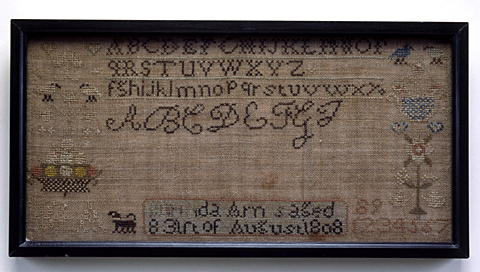 ABCDEFGHIJKLMNOP
QRSTUVWXYZ
fghijklmnopqrstuvwxyz
ABCDEFGJ
Arms aged 89
8 31st of August 1808 234567